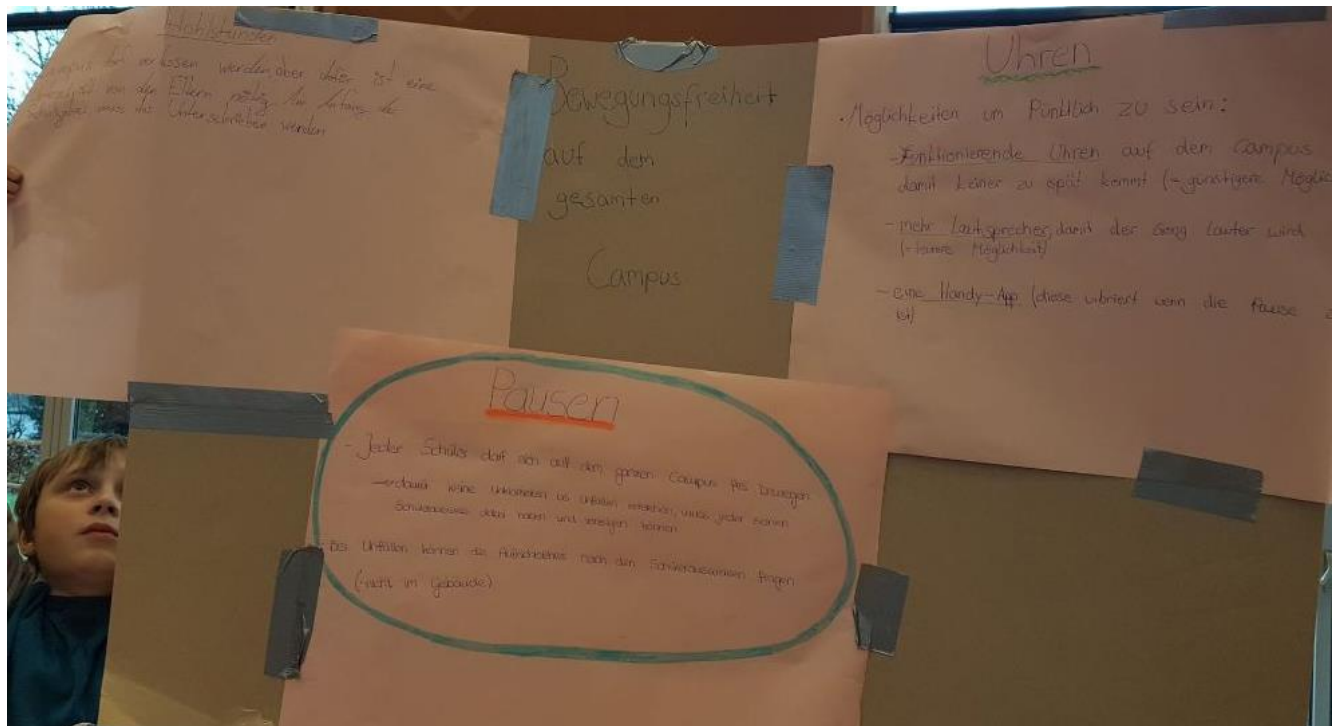 Hohlstunden
Campus darf verlassen werden, aber dafür ist eine
von den Eltern nötig. Am Anfang des
muss das Unterschrieben werden
Bewegungsfreiheit
auf dem
gesamten
Campus
Uhren
• Möglichkeiten um Pünktlich zu sein:
- Funktionierende Uhren auf dem Campus
damit keiner zu spät kommt (= günstigere Möglic
- mehr Lautsprecher, damit der Gong lauter wird
(- teurere Möglichkeit)
- eine Handy-App (diese vibriert wenn die Pause
ist)
Pausen
- Jeder Schüler darf sich auf dem ganzen Campus frei bewegen
keine Unklarheiten bei Unfällen entstehen, muss jeder seinen
Schülerausweis dabei haben und vorzeigen können
- Bei Unfällen können die Aufsichtslehrer nach den Schülerausweisen fragen
(-nicht im Gebäude)